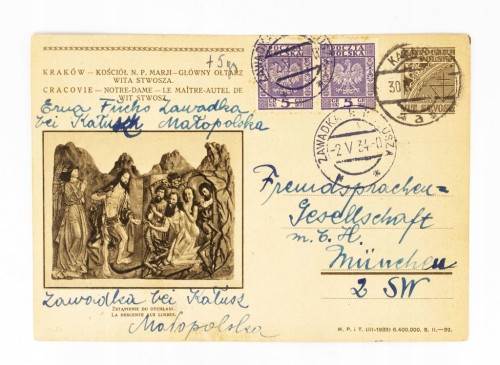 KRAKÓW — KOŚCIÓŁ N. P. MARJI — GŁÓWNY OŁTARZ
WITA STWOSZA.
CRACOVIE — NOTRE-DAME — LE MAÎTRE-AUTEL DE
WIT STWOSZ.
+5gr
POCZTA POLSKA
5
POCZTA POLSKA
5
30
WIT STWOSZ
Erna Fuchs Zawadka
bei Kałusz Małopolska
ZAWADKA K. KAŁUSZA
-2 V 34-0
*a*
Fremdsprachen=
Gesellschaft
m. b. H.
München
2 SW
Zawadka bei Kałusz
Małopolska
ZSTĄPIENIE DO OTCHŁANI.
LA DESCENTE AUX LIMBES.
M. P. i T. (III-1933) 6.400.000.